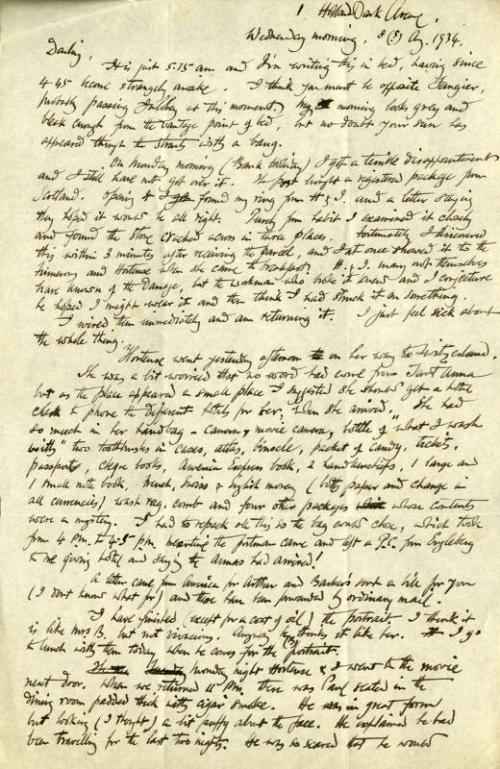 Holland Park Avenue,
Wednesday morning, 8 (8) Aug. 1934.
Darling,
It is just 5.15 am and I'm writing this in bed, having since
4.45 become strangely awake. I think you must be opposite Tangier,
probably passing at this moment. My morning looks grey and
bleak enough from the vantage point of bed, but no doubt your sun has
appeared through the with a bang.
On Monday morning (Bank holiday) I got a terrible disappointment
and I still have not got over it. The post brought a registered package from
Scotland. Opening it I found my ring from H & I. and a letter saying
they hoped it would be all right. Purely from habit I examined it closely
and found the stone cracked across in three places. Fortunately I discovered
this within 3 minutes after receiving the parcel, and I at once showed it to the
and Hortense when she came to breakfast. H. & I. may not themselves
have known of the damage, but the workman who broke it knew and I conjecture
he hoped I might wear it and then think I had struck it on something.
I wired them immediately and am returning it. I just feel sick about
the whole thing.
Hortense went yesterday afternoon on her way to Switzerland.
She was a bit worried that no word had come from Anna
but as the place appeared a small place I suggested she should get a hotel
clerk to phone to different hotels for her, when she arrived. She had
so much in her handbag – camera, movie camera, bottle of "what I wash
with" two toothbrushes in cases, atlas, tinsele, packet of candy, tickets,
passports, cheque books, American Express book, 2 handkerchiefs, 1 large and
1 small note book, French, Swiss & English money (both paper and change in
all currencies) wash rag, comb and four other packages whose contents
were a mystery. I had to repack all this so the bag could close, which took
from 4 PM. to 4.25 PM. meantime the postman came and left a P.C. from
to me giving hotel and saying the Annas had arrived!
A letter came from America for Arthur and Barkers sent a bill for you
(I don't know what for) and these have been forwarded by ordinary mail.
I have finished (except for a coat of oil) the portrait. I think it
is like Mrs B. but not vivacious. Anyway thinks it like her. I go
to lunch with them today when he comes for the portrait.
Monday night Hortense & I went to the movie
next door. When we returned 11 PM. there was Paul seated in the
dining room padded thick with cigar smoke. He was in great form
but looking (I thought) a bit puffy about the face. He explained he had
been travelling for the last two nights. He was so scared that he would